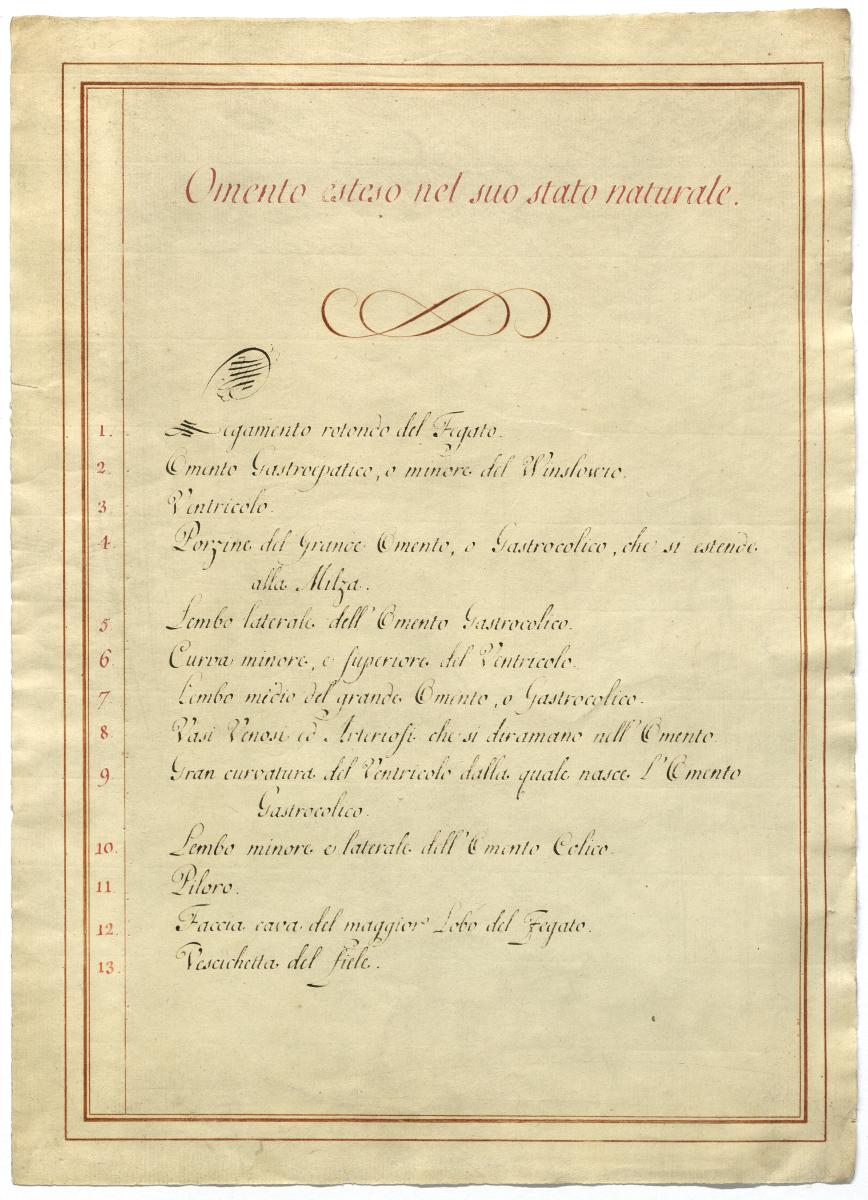 Omento esteso nel suo stato naturale.
1. Legamento rotondo del Fegato.
2. Omento Gastroepatico, o minore del Winslowio.
3 Ventricolo.
4. Porzine del Grande Omento, o Gastrocolico, che si estende
alla Milza.
5 Lembo laterale dell' Omento Gastrocolico.
6 Curva minore, e superiore del Ventricolo.
7 Lembo medio del grande Omento, o Gastrocolico.
8 Vasi Venosi ed Arteriosi che si diramano nell' Omento.
9 Gran curvatura del Ventricolo dalla quale nasce l'Omento
Gastrocolico.
10. Lembo minore e laterale dell' Omento Colico.
11 Piloro.
12. Faccia cava del maggior Lobo del Fegato.
13. Vescichetta del fiele.